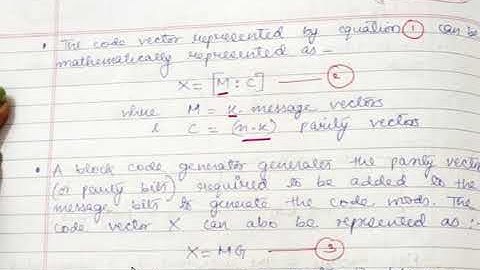 • The code vector represented by equation ① can be
mathematically represented as -
X = [M : C] — ②
where M = k - message vectors
& C = (n-k) parity vectors
• A block code generator generates the parity vector
(or parity bits) required to be added to the
message bits to generate the code words. The
code vector X can also be represented as :-
X = MG — ③